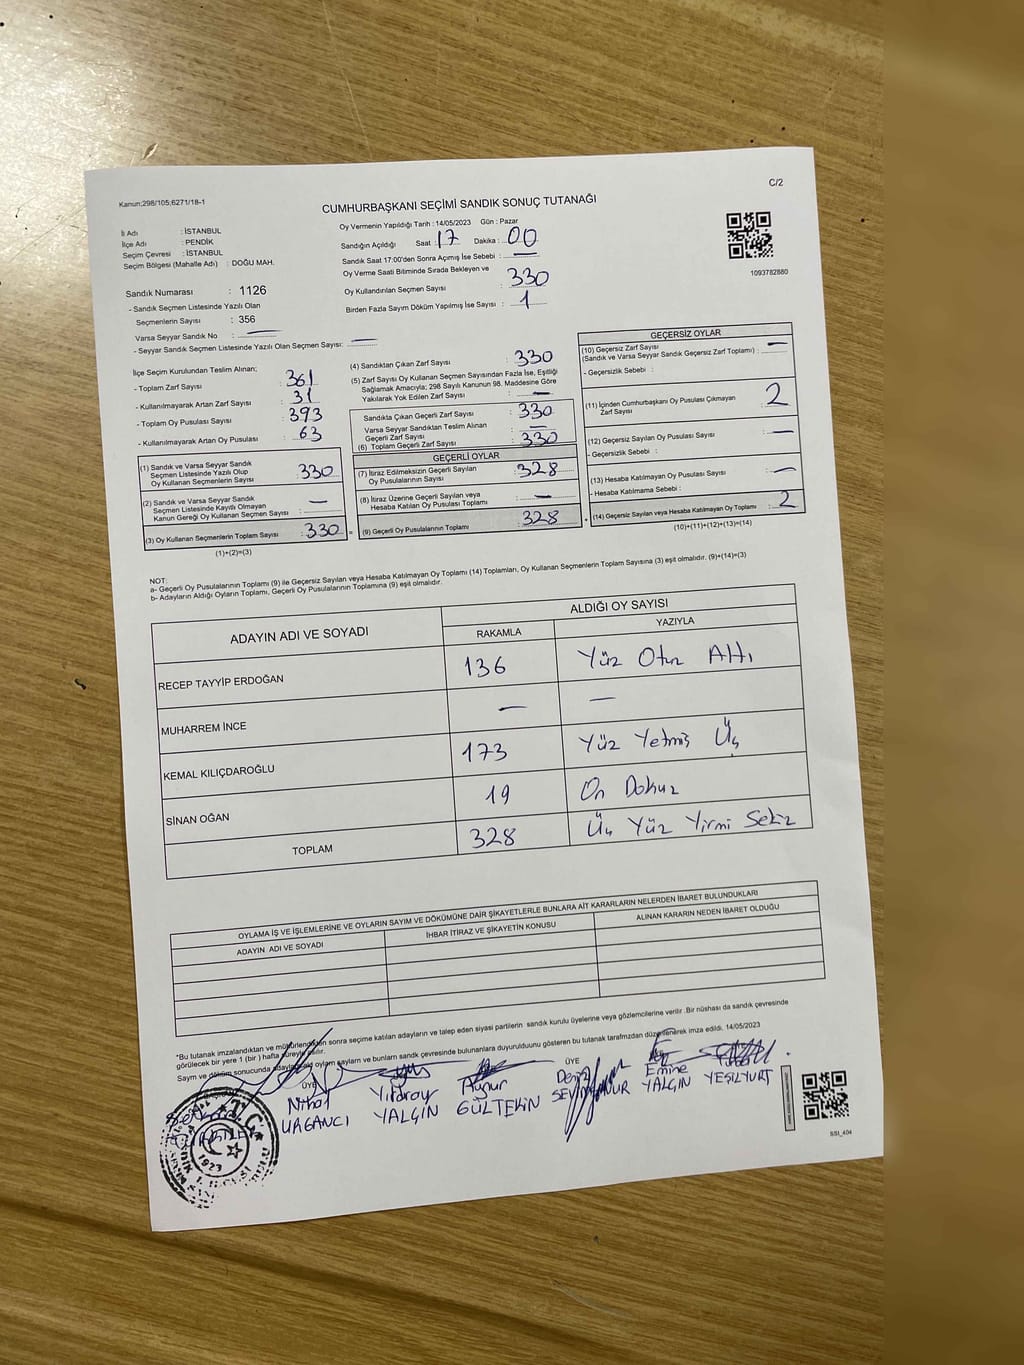 C/2
Kanun;298/105;6271/18-1
CUMHURBAŞKANI SEÇİMİ SANDIK SONUÇ TUTANAĞI
İl Adı : İSTANBUL
İlçe Adı : PENDİK
Seçim Çevresi : İSTANBUL
Seçim Bölgesi (Mahalle Adı) : DOĞU MAH.
Sandık Numarası : 1126
- Sandık Seçmen Listesinde Yazılı Olan
Seçmenlerin Sayısı : 356
Varsa Seyyar Sandık No : —
- Seyyar Sandık Seçmen Listesinde Yazılı Olan Seçmen Sayısı: —
Oy Vermenin Yapıldığı Tarih : 14/05/2023 Gün : Pazar
Sandığın Açıldığı Saat : 17 Dakika : 00
Sandık Saat 17:00'den Sonra Açımış İse Sebebi : —
Oy Verme Saati Bitiminde Sırada Bekleyen ve
Oy Kullandırılan Seçmen Sayısı : 330
Birden Fazla Sayım Döküm Yapılmış İse Sayısı : 1
1093782880
İlçe Seçim Kurulundan Teslim Alınan;
- Toplam Zarf Sayısı : 361
- Kullanılmayarak Artan Zarf Sayısı : 31
- Toplam Oy Pusulası Sayısı : 393
- Kullanılmayarak Artan Oy Pusulası : 63
(1) Sandık ve Varsa Seyyar Sandık
Seçmen Listesinde Yazılı Olup
Oy Kullanan Seçmenlerin Sayısı : 330
(2) Sandık ve Varsa Seyyar Sandık
Seçmen Listesinde Kayıtlı Olmayan
Kanun Gereği Oy Kullanan Seçmen Sayısı : —
(3) Oy Kullanan Seçmenlerin Toplam Sayısı : 330
(1)+(2)=(3)
(4) Sandıktan Çıkan Zarf Sayısı : 330
(5) Zarf Sayısı Oy Kullanan Seçmen Sayısından Fazla İse, Eşitliği
Sağlamak Amacıyla; 298 Sayılı Kanunun 98. Maddesine Göre
Yakılarak Yok Edilen Zarf Sayısı : —
Sandıkta Çıkan Geçerli Zarf Sayısı : 330
Varsa Seyyar Sandıktan Teslim Alınan
Geçerli Zarf Sayısı : —
(6) Toplam Geçerli Zarf Sayısı : 330
GEÇERLİ OYLAR
(7) İtiraz Edilmeksizin Geçerli Sayılan
Oy Pusulalarının Sayısı : 328
(8) İtiraz Üzerine Geçerli Sayılan veya
Hesaba Katılan Oy Pusulası Toplamı : —
(9) Geçerli Oy Pusulalarının Toplamı : 328
GEÇERSİZ OYLAR
(10) Geçersiz Zarf Sayısı
(Sandık ve Varsa Seyyar Sandık Geçersiz Zarf Toplamı) : —
- Geçersizlik Sebebi :
(11) İçinden Cumhurbaşkanı Oy Pusulası Çıkmayan
Zarf Sayısı : 2
(12) Geçersiz Sayılan Oy Pusulası Sayısı : —
- Geçersizlik Sebebi :
(13) Hesaba Katılmayan Oy Pusulası Sayısı : —
- Hesaba Katılmama Sebebi :
(14) Geçersiz Sayılan veya Hesaba Katılmayan Oy Toplamı : 2
(10)+(11)+(12)+(13)=(14)
NOT:
a- Geçerli Oy Pusulalarının Toplamı (9) ile Geçersiz Sayılan veya Hesaba Katılmayan Oy Toplamı (14) Toplamları, Oy Kullanan Seçmenlerin Toplam Sayısına (3) eşit olmalıdır. (9)+(14)=(3)
b- Adayların Aldığı Oyların Toplamı, Geçerli Oy Pusulalarının Toplamına (9) eşit olmalıdır.
ADAYIN ADI VE SOYADI ALDIĞI OY SAYISI
RAKAMLA YAZIYLA
RECEP TAYYİP ERDOĞAN 136 Yüz Otuz Altı
MUHARREM İNCE — —
KEMAL KILIÇDAROĞLU 173 Yüz Yetmiş Üç
SİNAN OĞAN 19 On Dokuz
TOPLAM 328 Üç Yüz Yirmi Sekiz
OYLAMA İŞ VE İŞLEMLERİNE VE OYLARIN SAYIM VE DÖKÜMÜNE DAİR ŞİKAYETLERLE BUNLARA AİT KARARLARIN NELERDEN İBARET BULUNDUKLARI
ADAYIN ADI VE SOYADI İHBAR İTİRAZ VE ŞİKAYETİN KONUSU ALINAN KARARIN NEDEN İBARET OLDUĞU
*Bu tutanak imzalandıktan ve mühürlendikten sonra seçime katılan adayların ve talep eden siyasi partilerin sandık kurulu üyelerine veya gözlemcilerine verilir .Bir nüshası da sandık çevresinde
görülecek bir yere 1 (bir ) hafta süreyle asılır.
Sayım ve döküm sonucunda adayların oylarını saylarn ve bunların sandık çevresinde bulunanlara duyurulduğunu gösteren bu tutanak tarafımızdan düzenlenerek imza edildi. 14/05/2023
ÜYE ÜYE
Nihat URGANCI
Yıldıray YALÇIN
Aynur GÜLTEKİN
Deniz
Emine YALÇIN
YEŞİLYURT
T.C.
1923
SSI_404